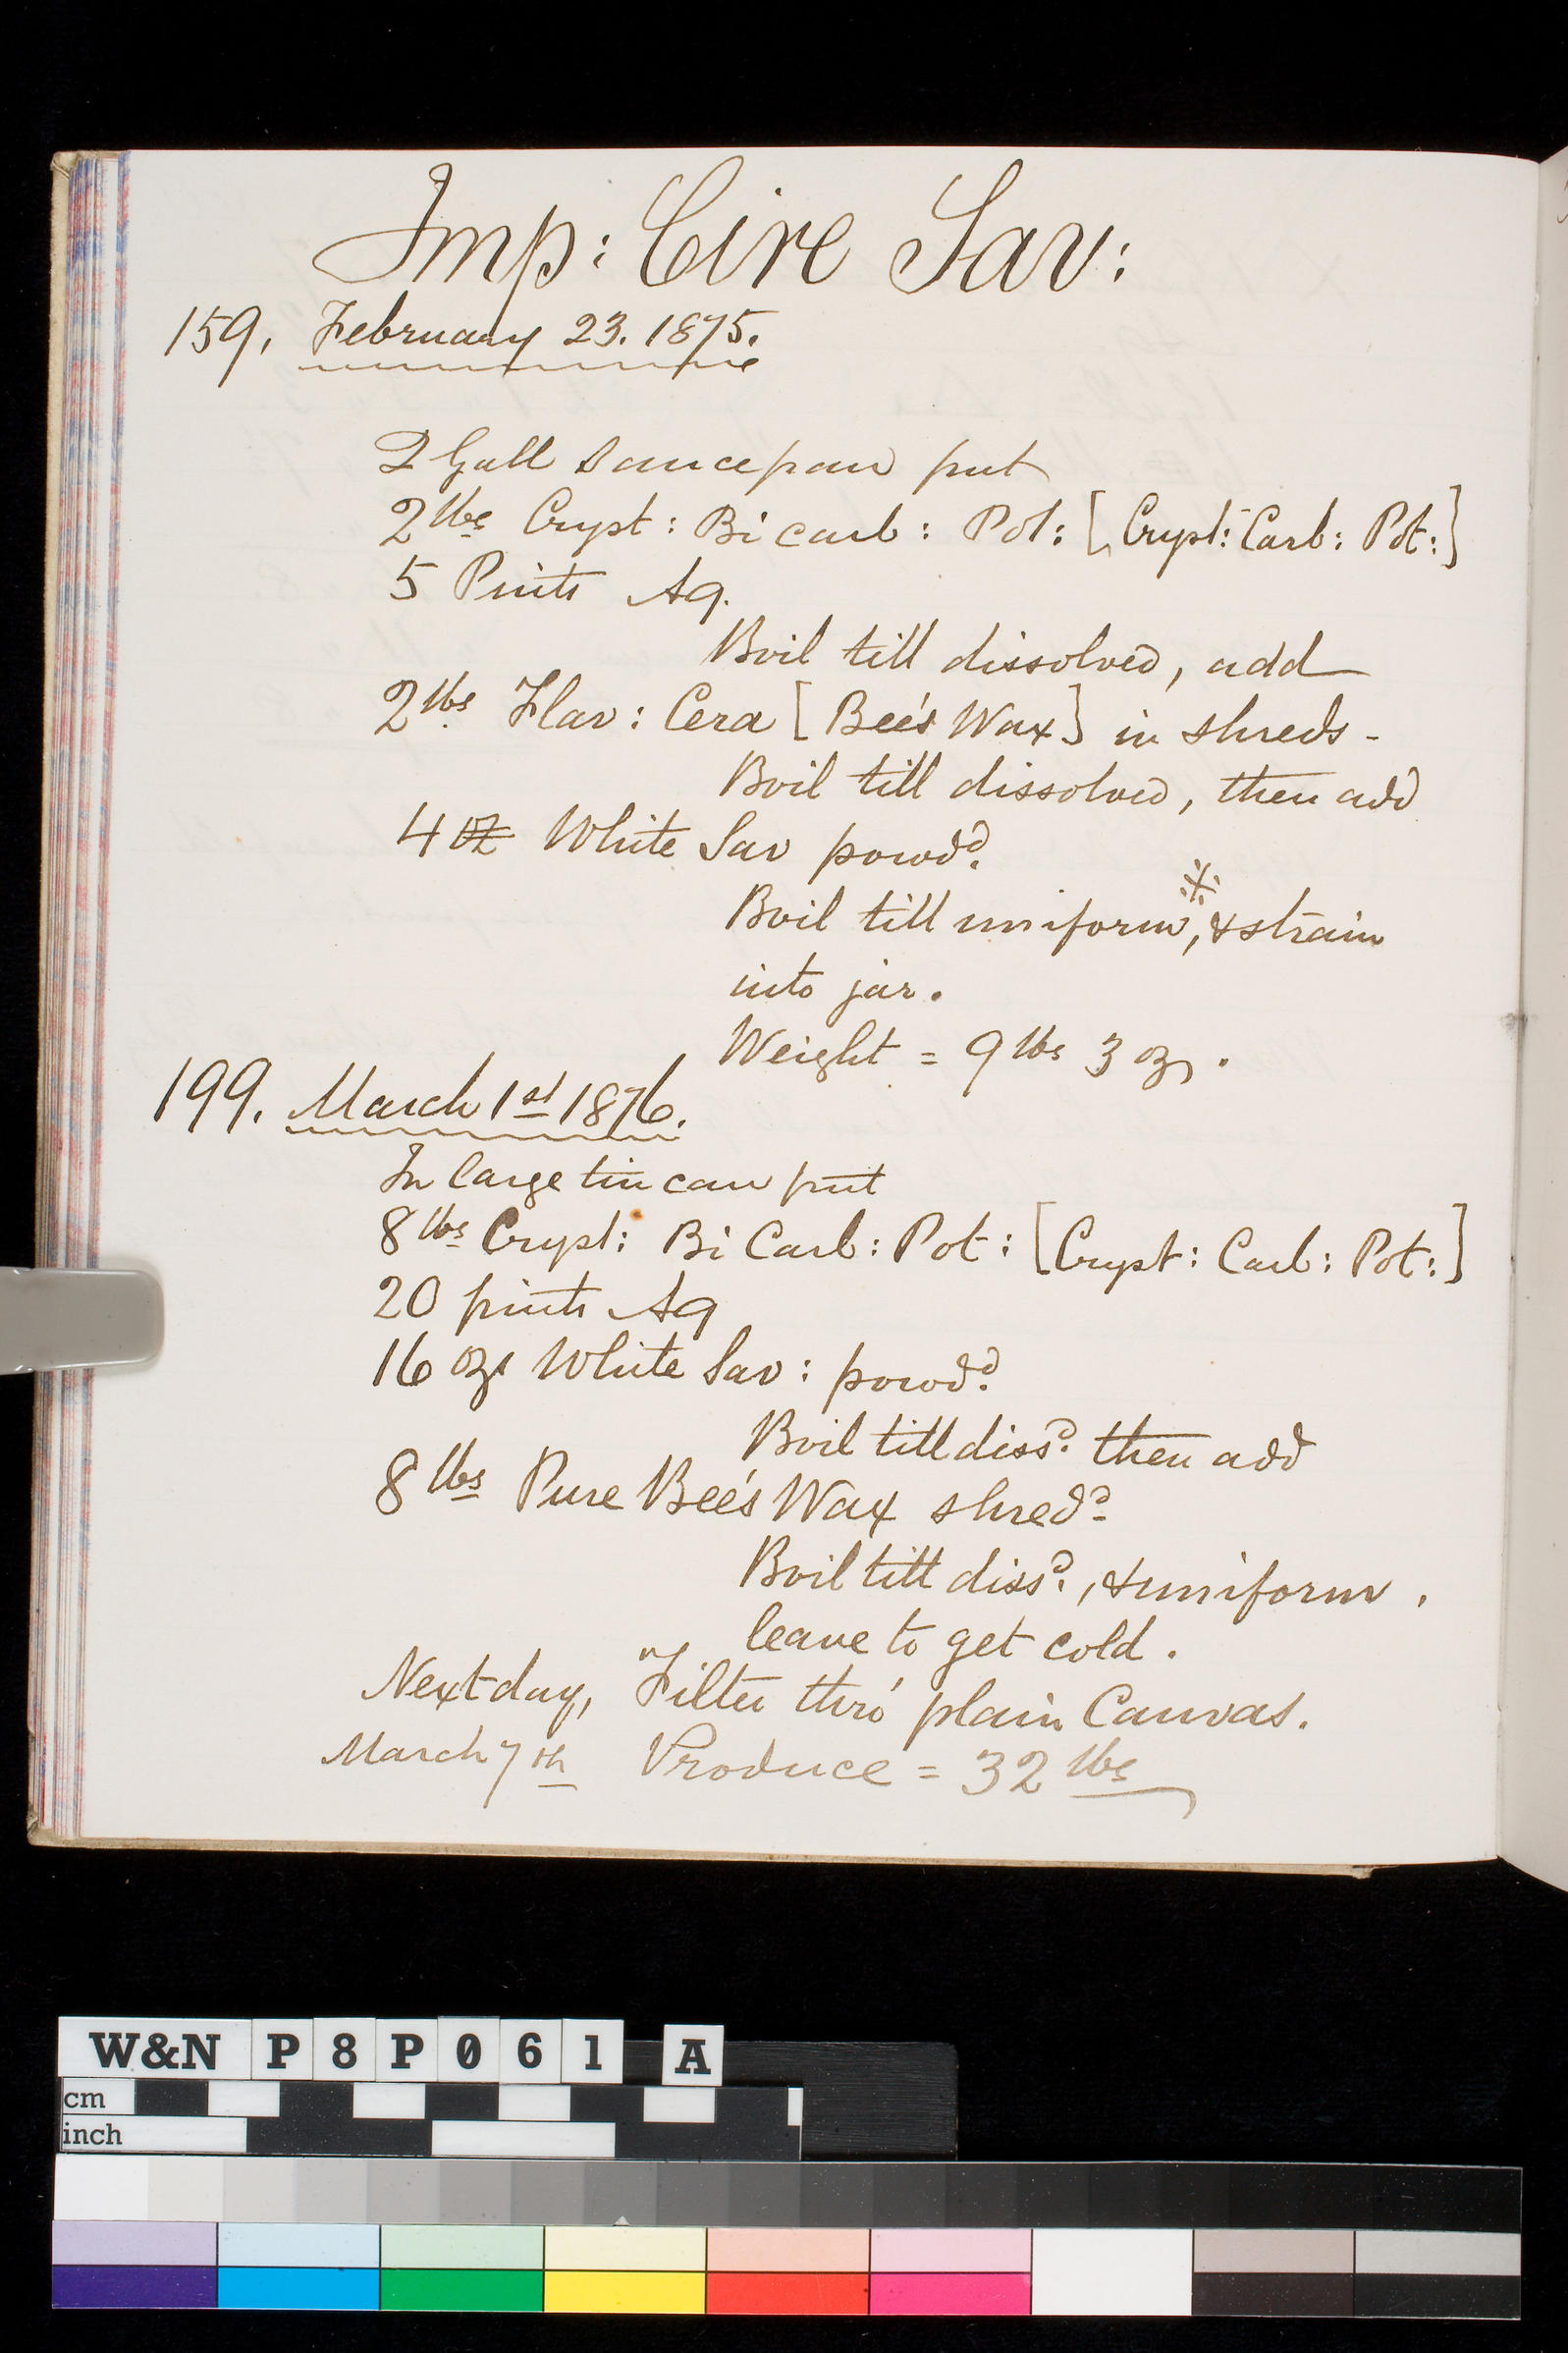 Imp: Cire Sav:
159. February 23. 1875.
2 Gall saucepan put
2 lbs Cryst: Bi carb: Pot: [Cryst: Carb: Pot:]
5 Pints Aq.
Boil till dissolved, add
2 lbs Flav: Cera [Bee's Wax] in shreds -
Boil till dissolved, then add
4 oz White Sav powdd.
Boil till uniform, & strain
into jar.
Weight = 9 lbs 3 oz.
199. March 1st 1876.
In large tin can put
8 lbs Cryst: Bi Carb: Pot: [Cryst: Carb: Pot:]
20 pints Aq
16 ozs White Sav: powdd.
Boil till dissd. then add
8 lbs Pure Bee's Wax shredd
Boil till dissd., & uniform.
leave to get cold.
Next day, Filter thro' plain Canvas.
March 7th Produce = 32 lbs
W&N P8P061 A
cm
inch